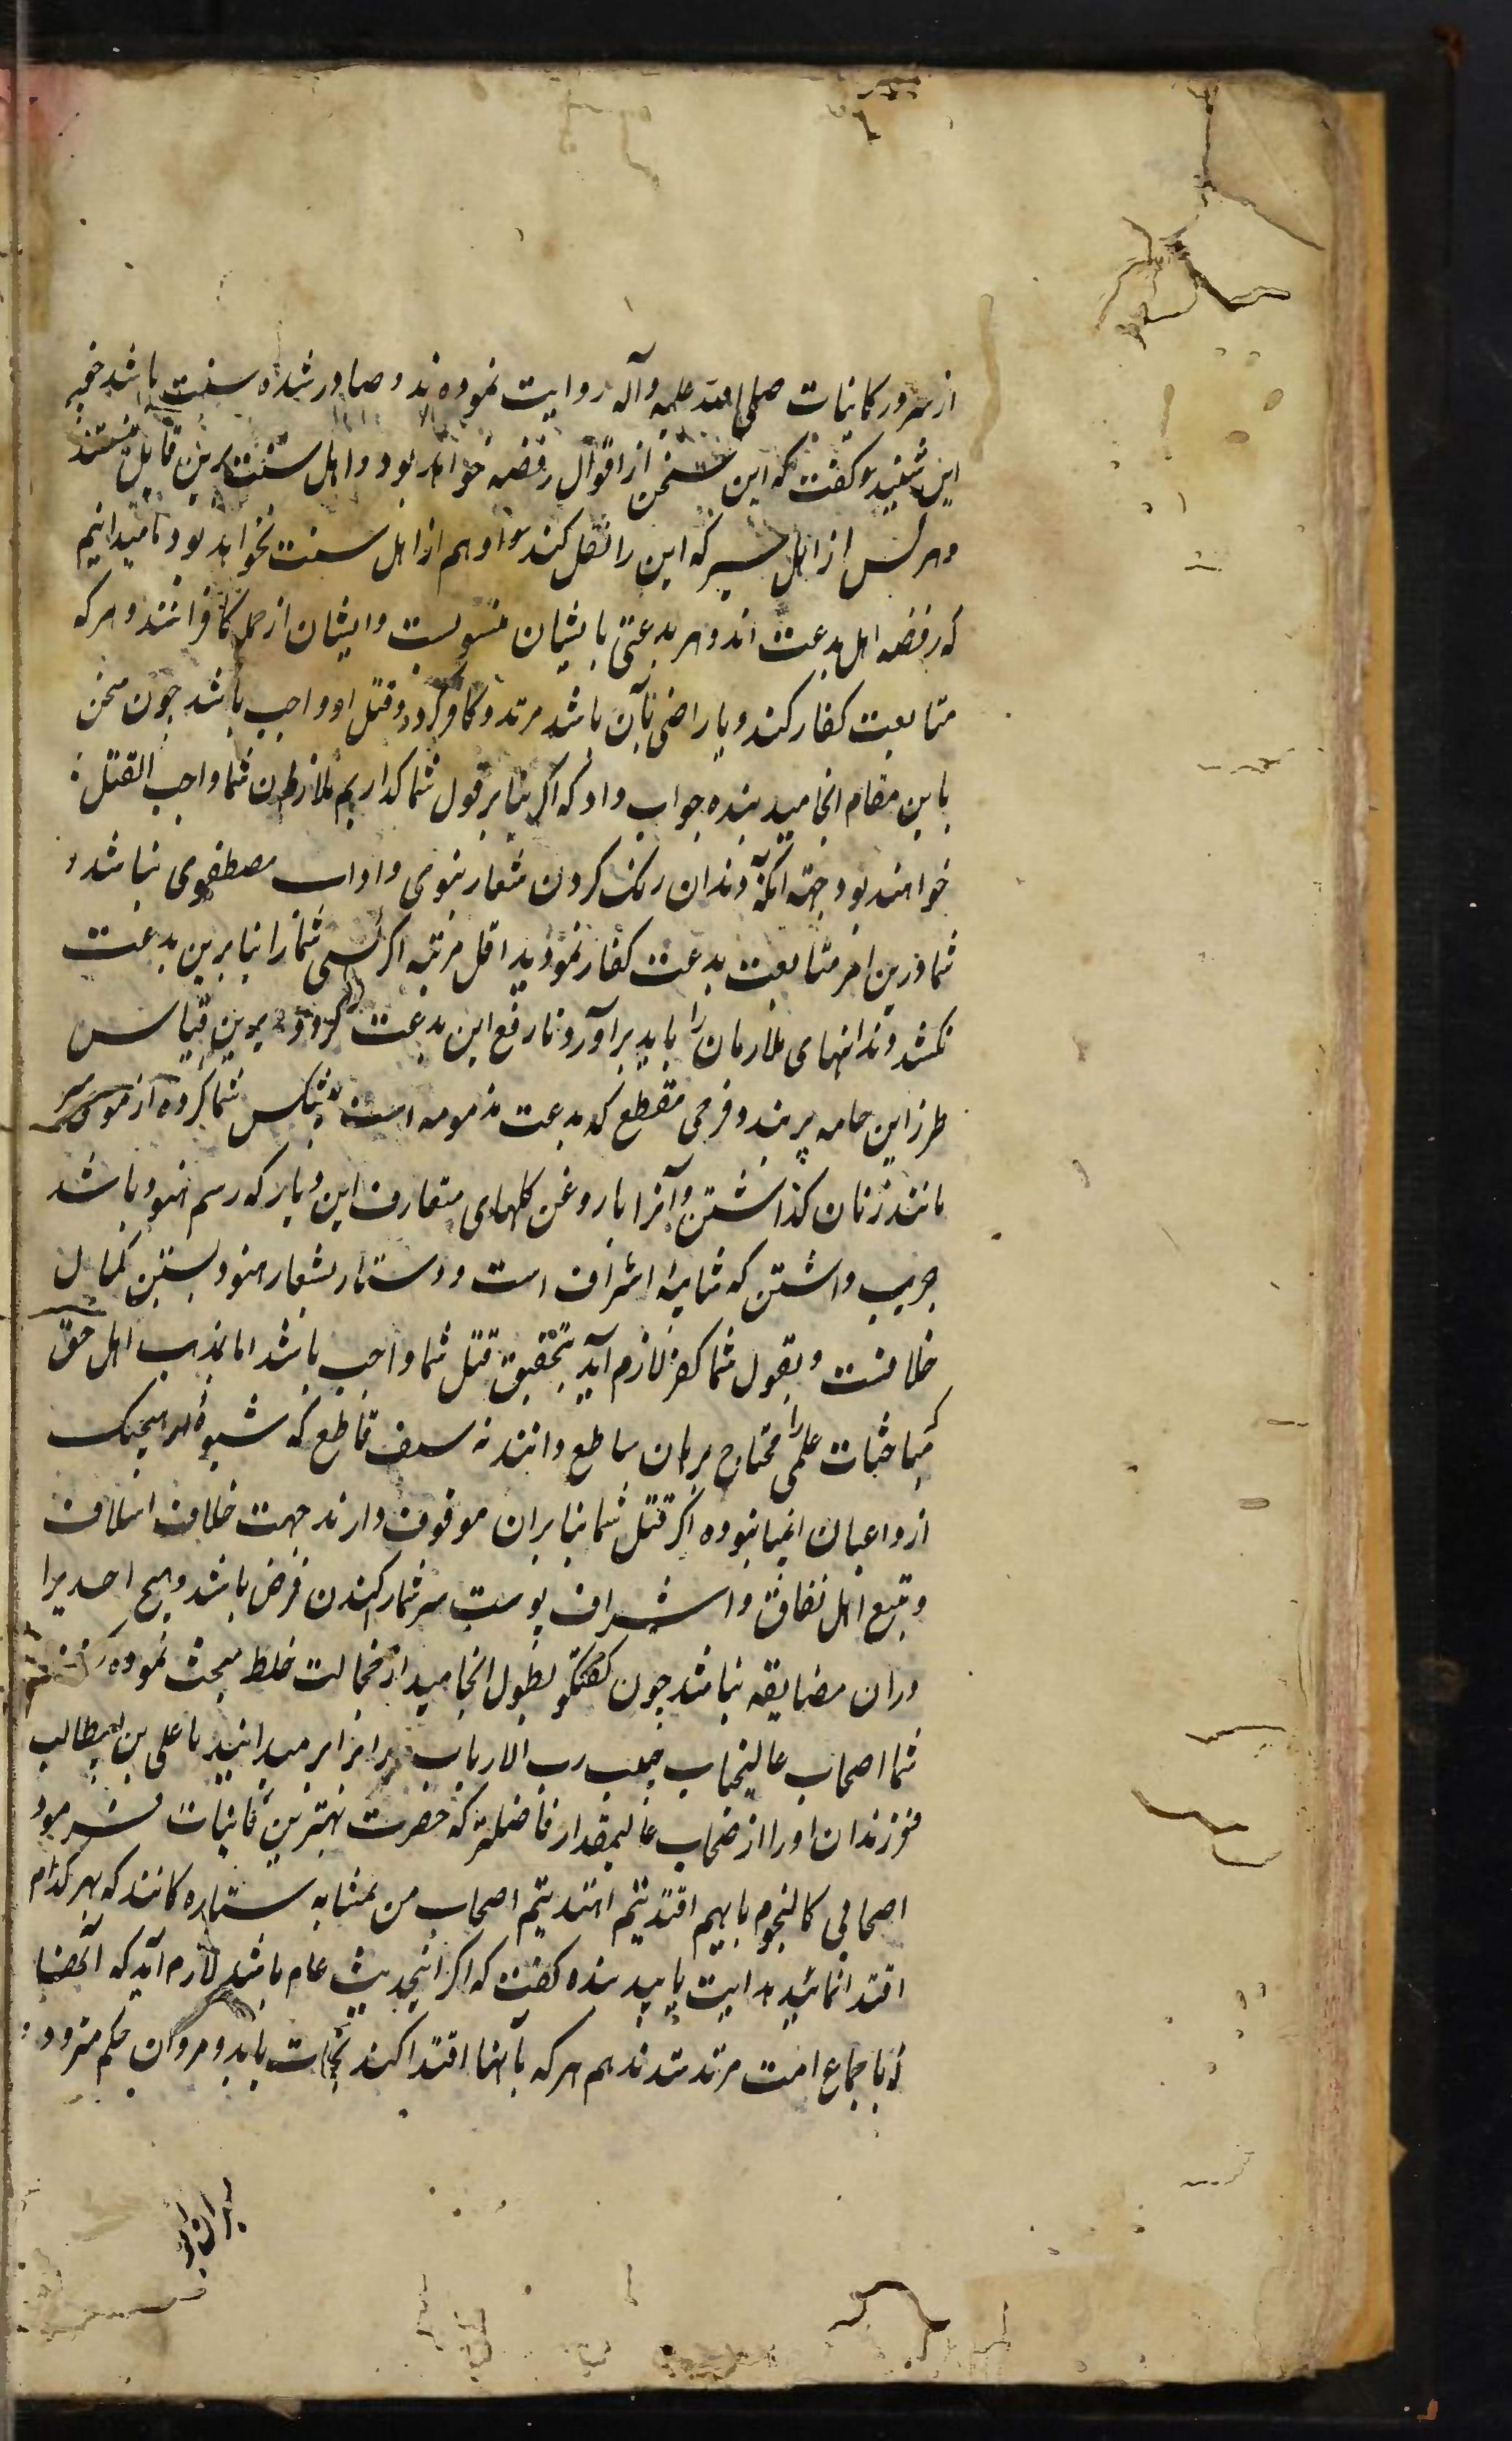 از سرور کاینات صلی الله علیه وآله روایت نموده‌اند و صادر شده سنت باشد
این شنید و گفت که این سخن از اقوال رفضه خواهد بود و اهل سنت برین قایل نیستند
و هر کس از اهل سیر که این را نقل کند او هم از اهل سنت نخواهد بود ما میدانیم
که رفضه اهل بدعت اند و هر بدعتی بایشان منسوبست و ایشان از جمله کافرانند و هر که
متابعت کفار کند و یا راضی بآن باشد مرتد و کافر گردد و قتل او واجب باشد چون سخن
باین مقام انجامید بنده جواب داد که اگر بنابر قول شما گذاریم ملازمان شما واجب القتل
خواهند بود جهة آنکه دندان رنگ کردن شعار نبوی و اداب مصطفوی نباشد و
شما درین امر متابعت بدعت کفار نمودید اقل مرتبه اگر کسی شما را بنابرین بدعت
نکشد دندانهای ملازمان را باید برآورد تا رفع این بدعت گردد و برین قیاس
طرز این جامه پربند و فرجی مقطع که بدعت مذمومه است شما کرده از موی سر
مانند زنان گذاشتن و آنرا با روغن گلهای متعارف این دیار که رسم هنود باشد
چرب داشتن که اشراف است و دستار بشعار هنود بستن کمال
خلافست و بقول شما کفر لازم آید بتحقیق قتل شما واجب باشد اما بمذهب اهل حق
که مباحثات علمی را محتاج برهان ساطع دانند نه سیف قاطع که شیوهٔ هر هیچیک
از داعیان نبوده اگر قتل شما بنابران موقوف دارند جهت خلاف اسلاف
و تتبع اهل نفاق و اشراف پوست سر شما را کندن فرض باشد و هیچ احدیرا
دران مضایقه نباشد چون گفتگو بطول انجامید از خجالت خلط مبحث نموده گفتند
شما اصحاب عالیجناب حبیب رب الارباب برابر میدانید با علی بن ابیطالب
فرزندان او را از صحاب عالیمقدار فاضلتر که حضرت بهترین کاینات فرمود
اصحابی کالنجوم بایهم اقتدیتم اهتدیتم اصحاب من بمثابه ستاره‌گانند که بهر کدام
اقتدا نمائید هدایت یابید بنده گفت که اگر اینحدیث عام باشد لازم آید که آنجماعت
که باجماع امت مرتد شدند هم هر که بآنها اقتدا کند نجات یابد و مروان حکم مردود